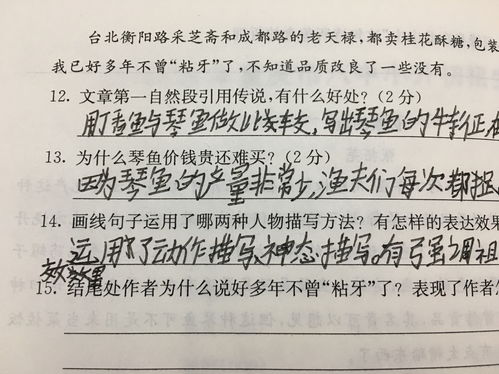 台北衡阳路采芝斋和成都路的老天禄,都卖桂花酥糖,包装
我已好多年不曾“粘牙”了,不知道品质改良了一些没有。
12. 文章第一自然段引用传说,有什么好处?(2分)
用香鱼与琴鱼做比较,写出琴鱼的特征
13. 为什么琴鱼价钱贵还难买?(2分)
因为琴鱼的产量非常少,渔夫们每次都捉
14. 画线句子运用了哪两种人物描写方法?有怎样的表达效果
运用了动作描写、神态描写。有强调祖
效果
15. 结尾处作者为什么说好多年不曾“粘牙”了?表现了作者怎